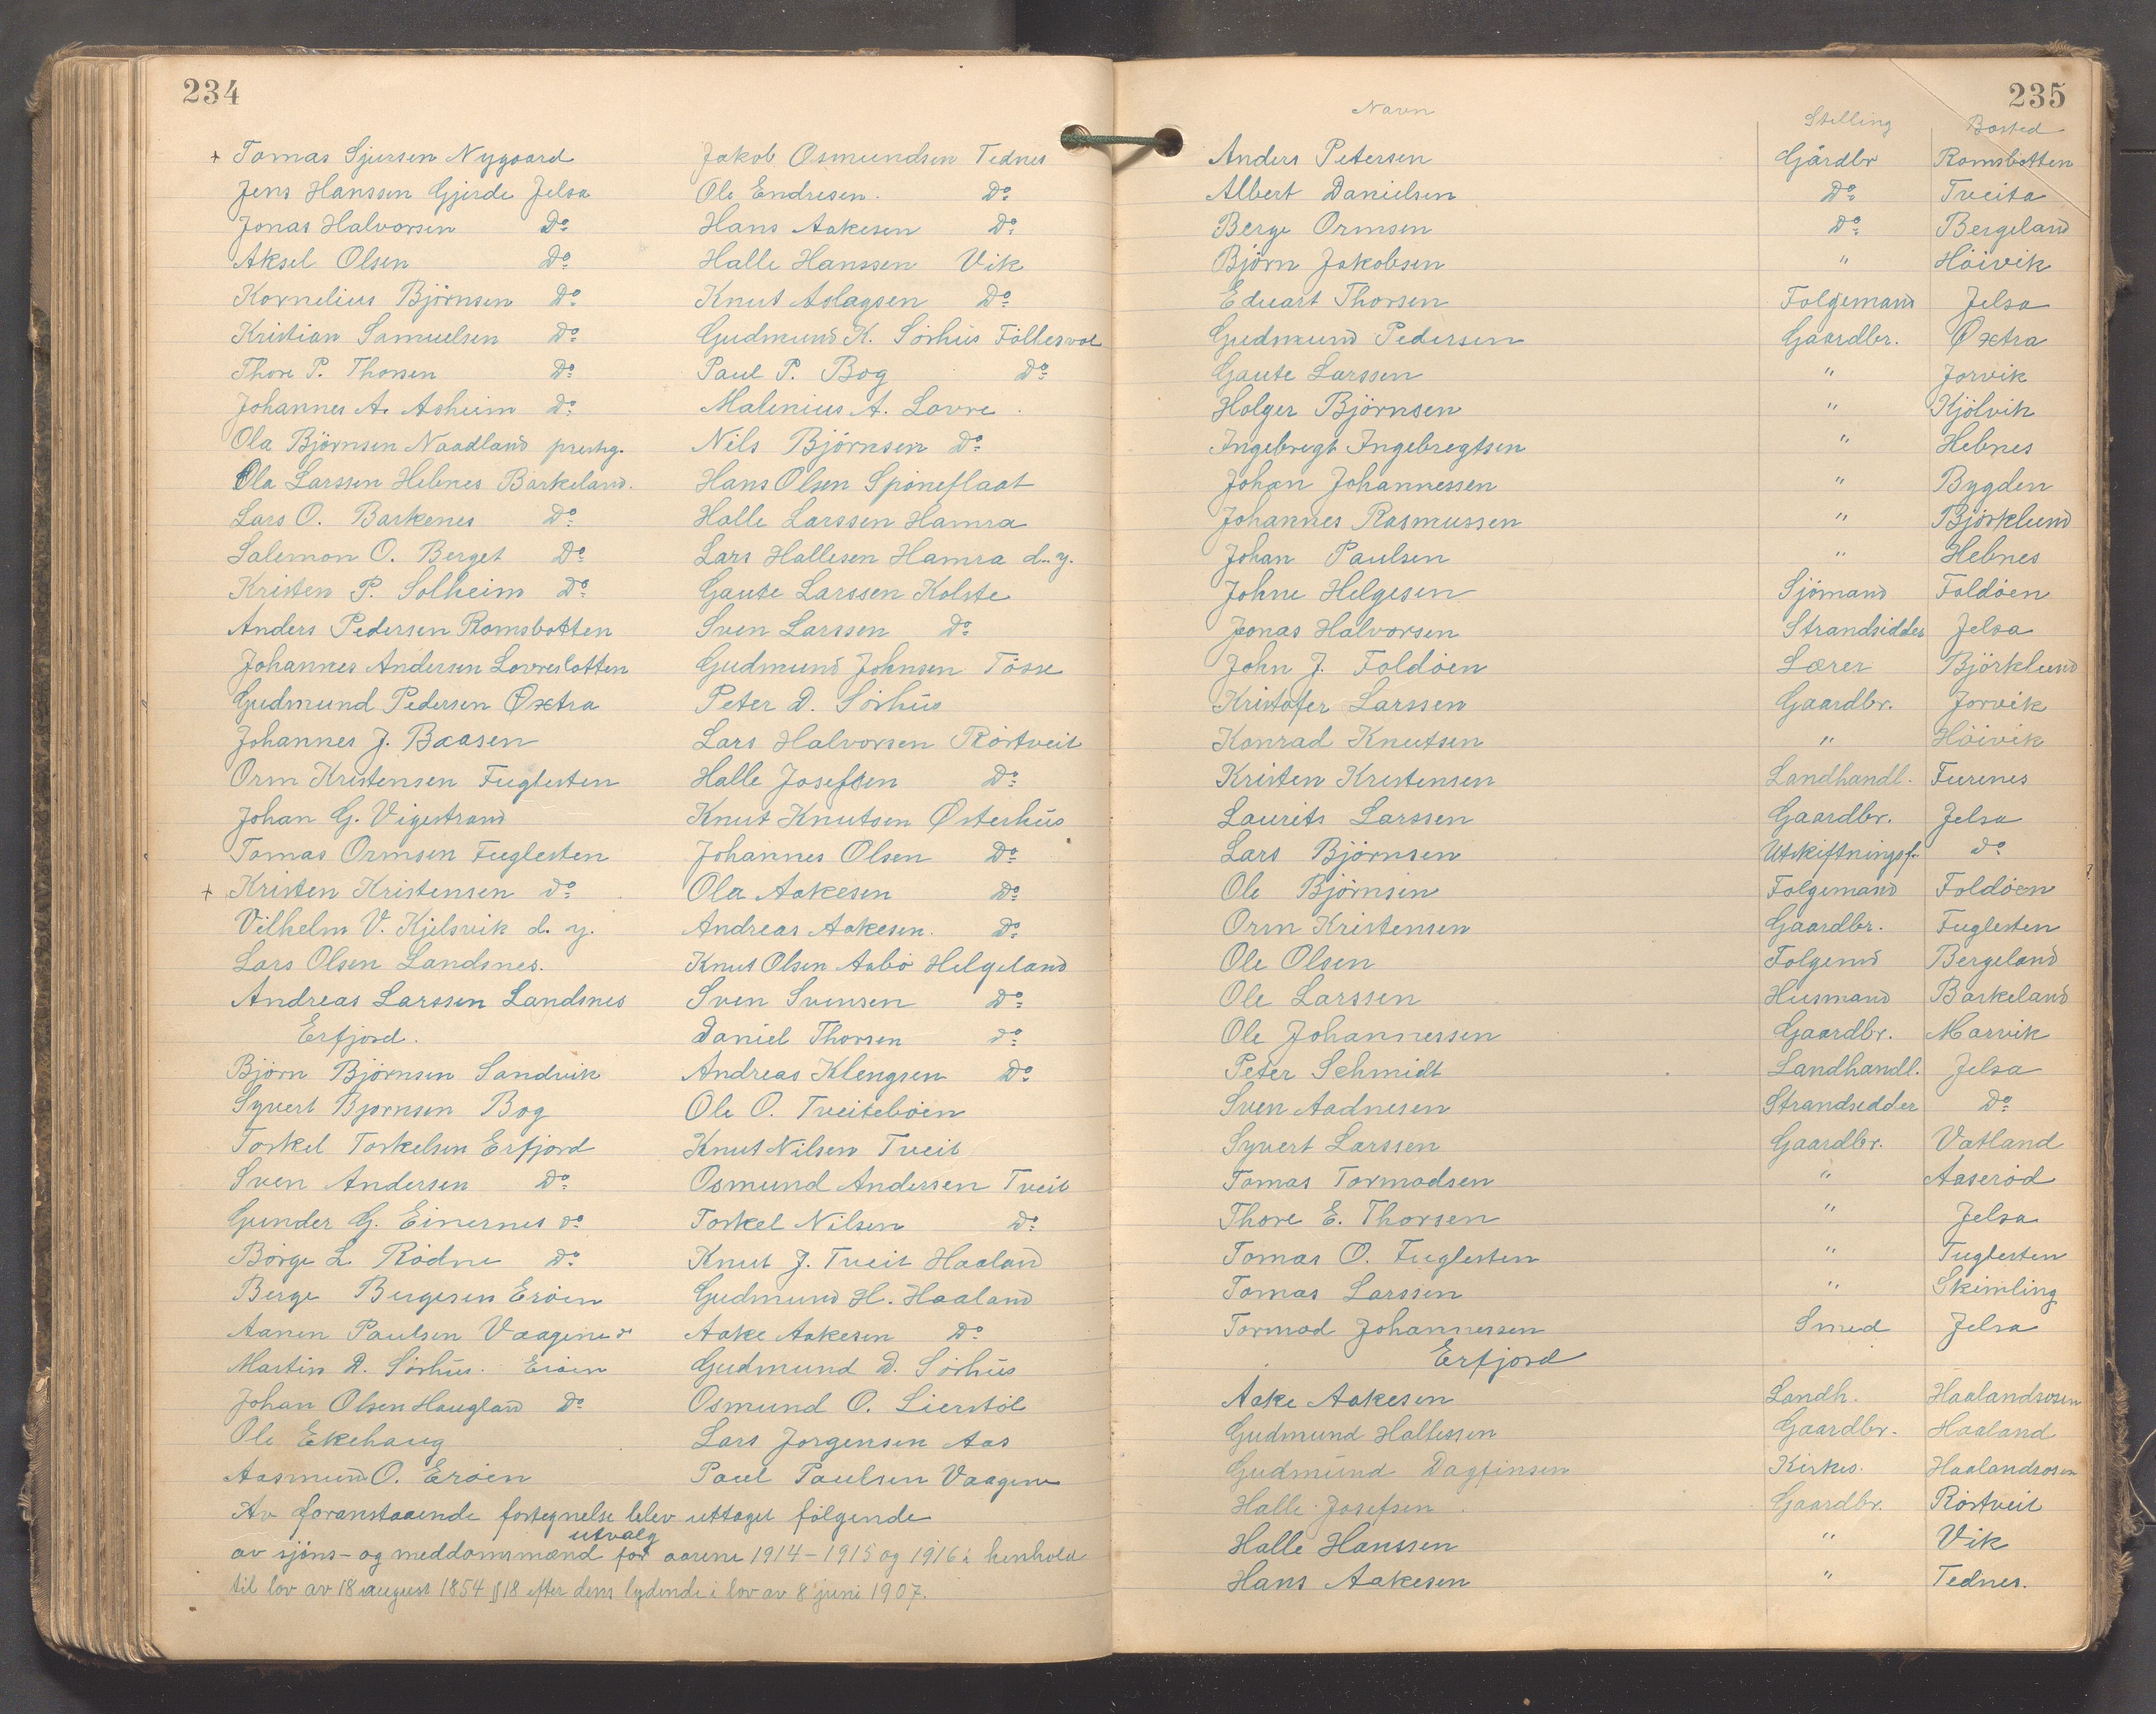 234
+ Tomas Sjursen Nygaard
Jens Hanssen Gjerde Jelsa
Jonas Halvorsen Do
Aksel Olsen Do
Kornelius Björnsen Do
Kristian Samuelsen Do
Thore P. Thorsen Do
Johannes A. Asheim Do
Ola Björnsen Naadland prestg.
Ola Larssen Hebnes Barkeland.
Lars O. Barkenes Do
Salemon O. Berget Do
Kristen P. Solheim Do
Anders Pedersen Romsbotten
Johannes Andersen Lovreslotten
Gudmund Pedersen Øxtra
Johannes J. Baasen
Orm Kristensen Fuglesten
Johan G. Vigestrand
Tomas Ormsen Fuglesten
+ Kristen Kristensen do
Vilhelm V. Kjelsvik d. y.
Lars Olsen Landsnes.
Andreas Larssen Landsnes
Erfjord.
Björn Björnsen Sandvik
Syvert Bjornsen Bog
Torkel Torkelsen Erfjord
Sven Andersen Do
Gunder G. Einernes do
Börge L. Rödne Do
Berge Bergesen Eröen
Aanen Paulsen Vaagene
Martin D. Sörhus. Eröen
Johan Olsen Haugland Do
Ole Ekehaug
Aasmund O. Eröen
Jakob Osmundsen Tednes
Ole Endresen. Do
Hans Aakesen Do
Halle Hanssen Vik
Knut Aslagsen Do
Gudmund K. Sörhus Föllesvol
Paul P. Bog Do
Malenius A. Lovre.
Nils Björnsen Do
Hans Olsen Spöneflaat
Halle Larssen Hamra
Lars Hallesen Hamra d. y.
Gaute Larssen Kolste
Sven Larssen Do
Gudmund Johnsen Tösse
Peter D. Sörhus
Lars Halvorsen Rörtveit
Halle Josefsen Do
Knut Knutsen Østerhus
Johannes Olsen Do
Ola Aakesen Do
Andreas Aakesen. Do
Knut Olsen Aabö Helgeland
Sven Svensen Do
Daniel Thorsen do
Andreas Klengsen Do
Ole O. Tveiteböen
Knut Nilsen Tveit
Osmund Andersen Tveit
Torkel Nilsen Do
Knut J. Tveit Haaland
Gudmund H. Haaland
Aake Aakesen Do
Gudmund D. Sörhus
Osmund O. Lierstöl
Lars Jorgensen Aas
Paul Paulsen Vaagene
Av foranstaaende fortegnelse blev uttaget fölgende
utvalg
av sjöns- og meddomsmænd for aarene 1914-1915 og 1916 i henhold
til lov av 18 august 1854 § 18 efter dens lydende i lov av 8 juni 1907.
235
Navn Stilling Bosted
Anders Petersen Gårdbr Romsbotten
Albert Danielsen Do Tveita
Berge Ormsen Do Bergeland
Björn Jakobsen " Höivik
Eduart Thorsen Folgemand Jelsa
Gudmund Pedersen Gaardbr. Øxtra
Gaute Larssen " Jorvik
Holger Björnsen " Kjölvik
Ingebregt Ingebregtsen " Hebnes
Johan Johannessen " Bygden
Johannes Rasmussen " Björklund
Johan Paulsen " Hebnes
Johne Helgesen Sjömand Foldöen
Jonas Halvorsen Strandsidder Jelsa
John J. Foldöen Lærer Björklund
Kristofer Larssen Gaardbr. Jorvik
Konrad Knutsen " Höivik
Kristen Kristensen Landhandl. Furenes
Laurits Larssen Gaardbr. Jelsa
Lars Björnsen Utskiftningsf. do
Ole Björnsen Folgemand Foldöen
Orm Kristensen Gaardbr. Fuglesten
Ole Olsen Folgemd Bergeland
Ole Larssen Husmand Barkeland
Ole Johannessen Gaardbr. Marvik
Peter Schmidt Landhandl. Jelsa
Sven Aadnesen Strandsedder Do
Syvert Larssen Gaardbr. Vatland
Tomas Tormodsen " Aaseröd
Thore E. Thorsen " Jelsa
Tomas O. Fuglesten " Fuglesten
Tomas Larssen " Skimling
Tormod Johannessen Smed Jelsa
Erfjord
Aake Aakesen Landh. Haalandsosen
Gudmund Hallessen Gaardbr. Haaland
Gudmund Dagfinsen Kirkes. Haalandsosen
Halle Josefsen. Gaardbr. Rörtveit
Halle Hanssen " Vik
Hans Aakesen " Tednes.